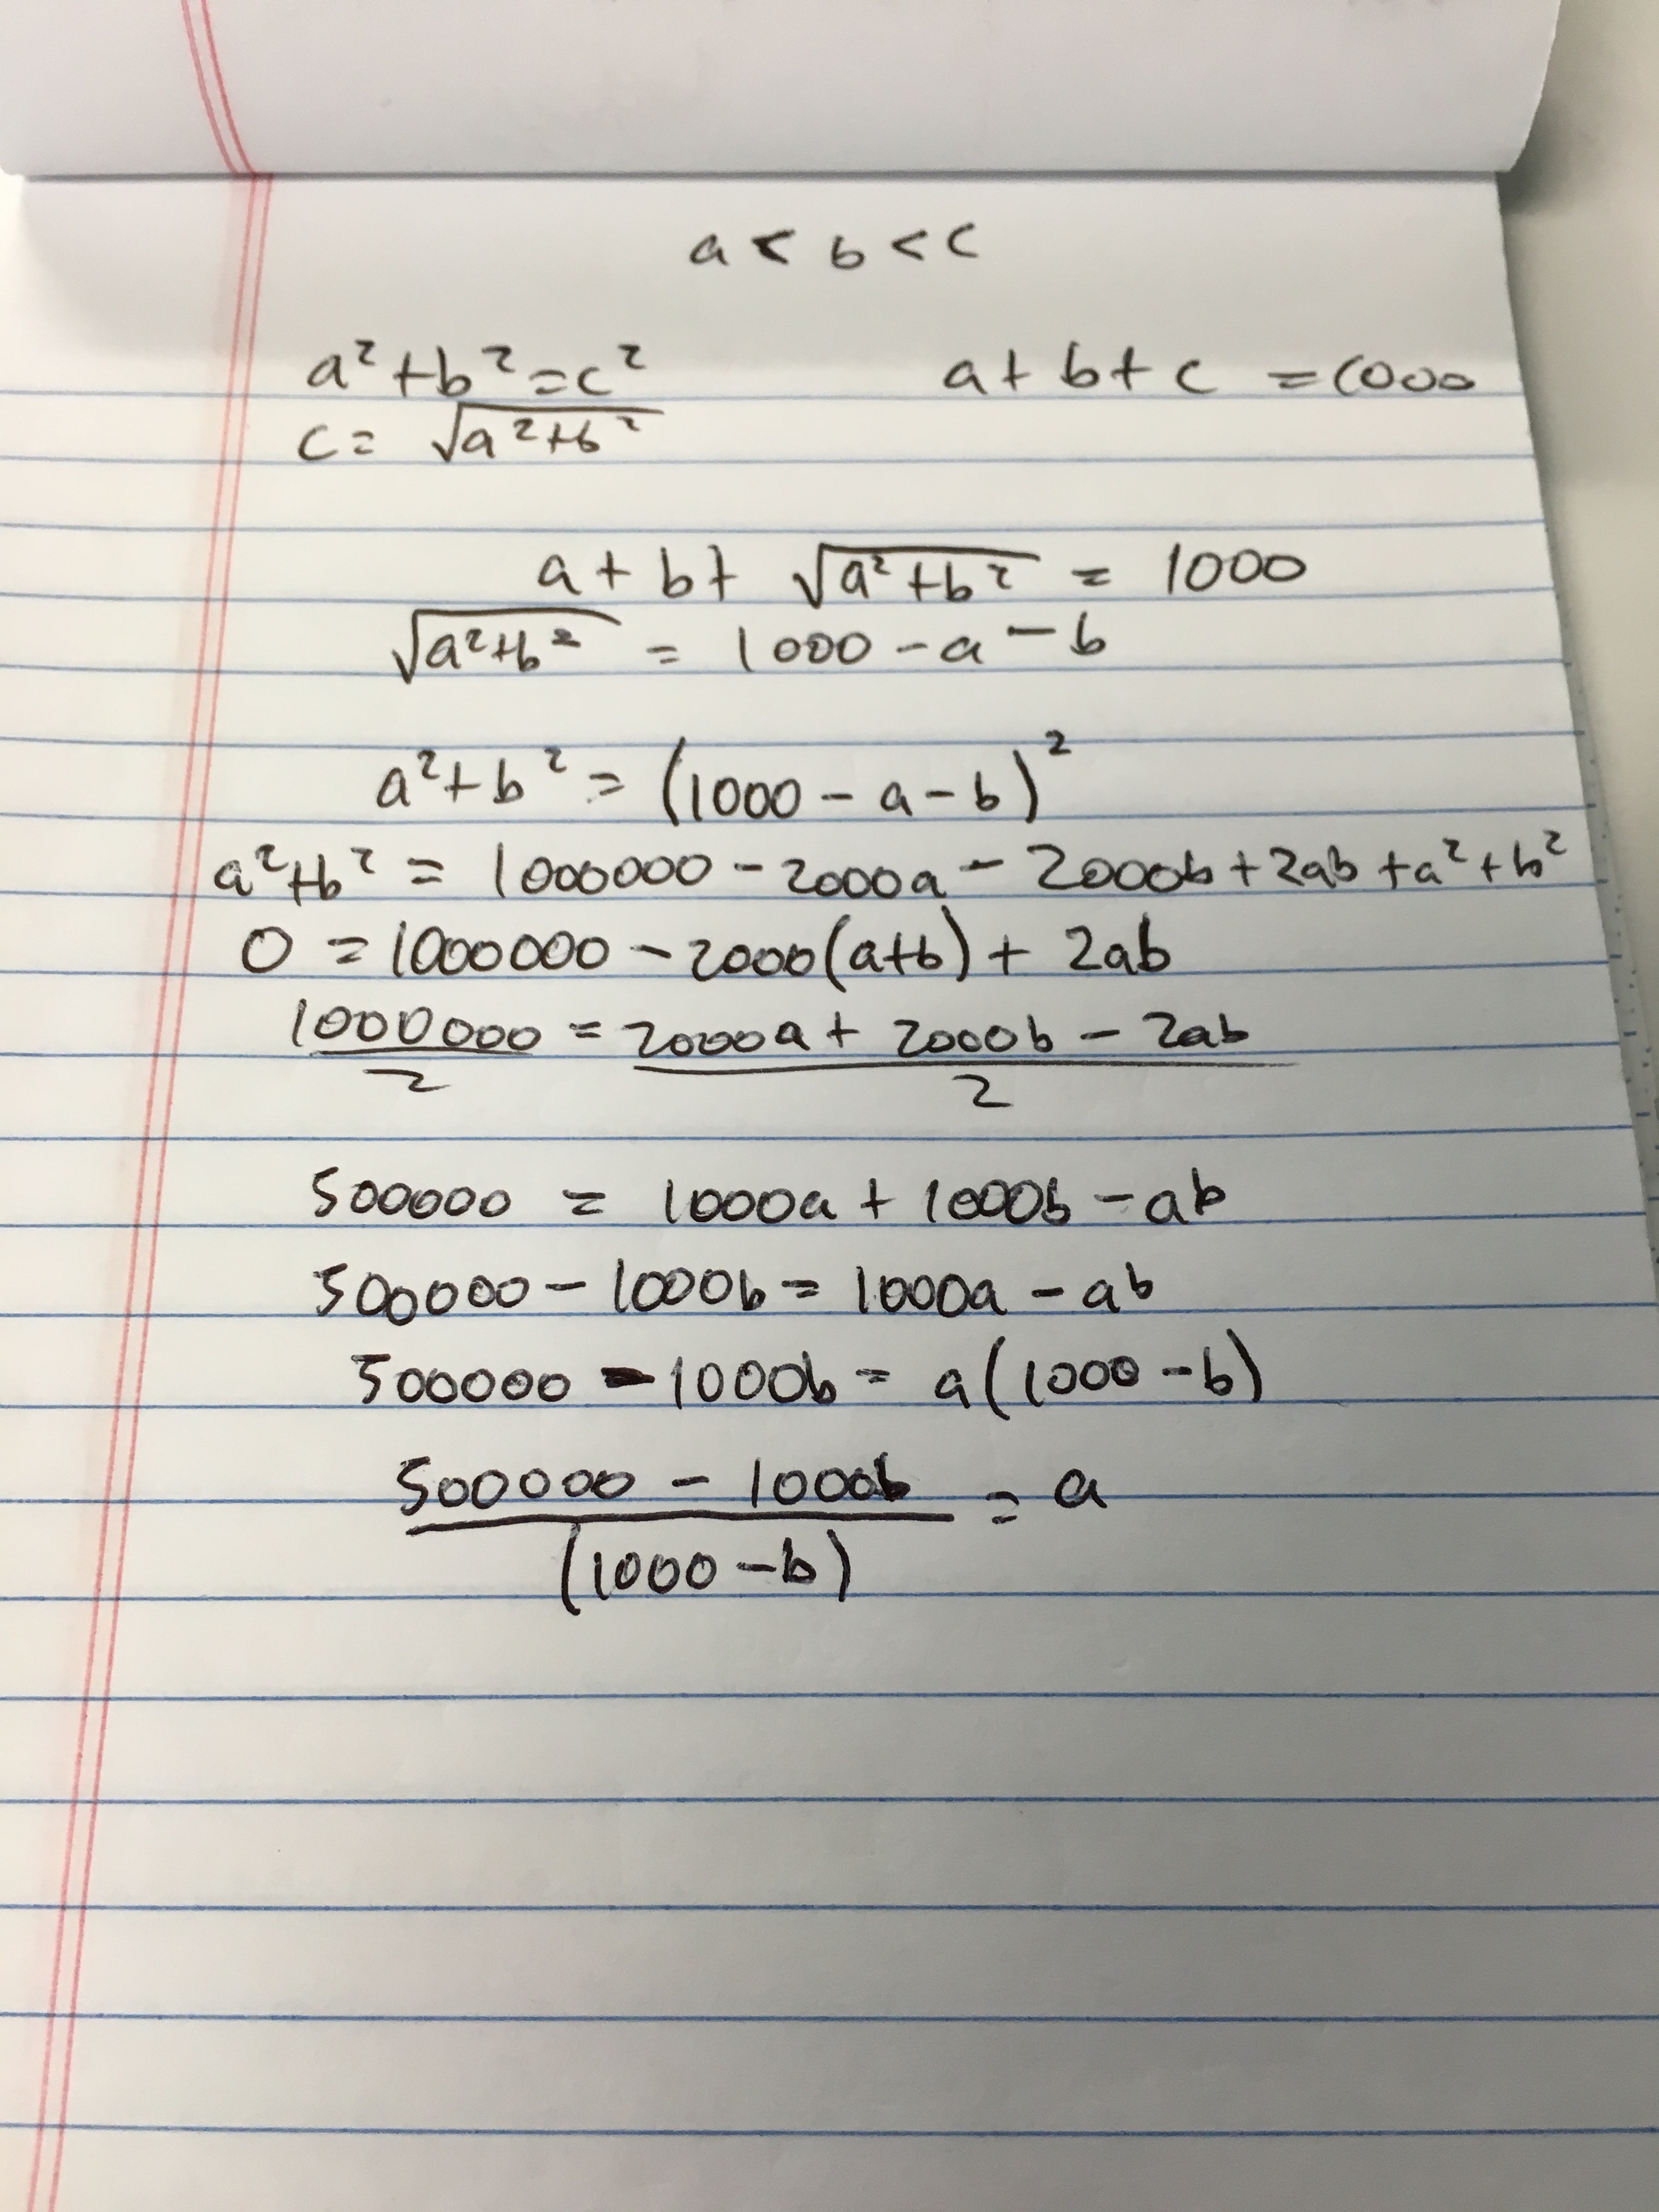 a < b < c
a² + b² = c² a + b + c = 1000
c = √(a² + b²)
a + b + √(a² + b²) = 1000
√(a² + b²) = 1000 - a - b
a² + b² = (1000 - a - b)²
a² + b² = 1000000 - 2000a - 2000b + 2ab + a² + b²
0 = 1000000 - 2000(a+b) + 2ab
1000000/2 = (2000a + 2000b - 2ab)/2
500000 = 1000a + 1000b - ab
500000 - 1000b = 1000a - ab
500000 - 1000b = a(1000 - b)
(500000 - 1000b)/(1000 - b) = a